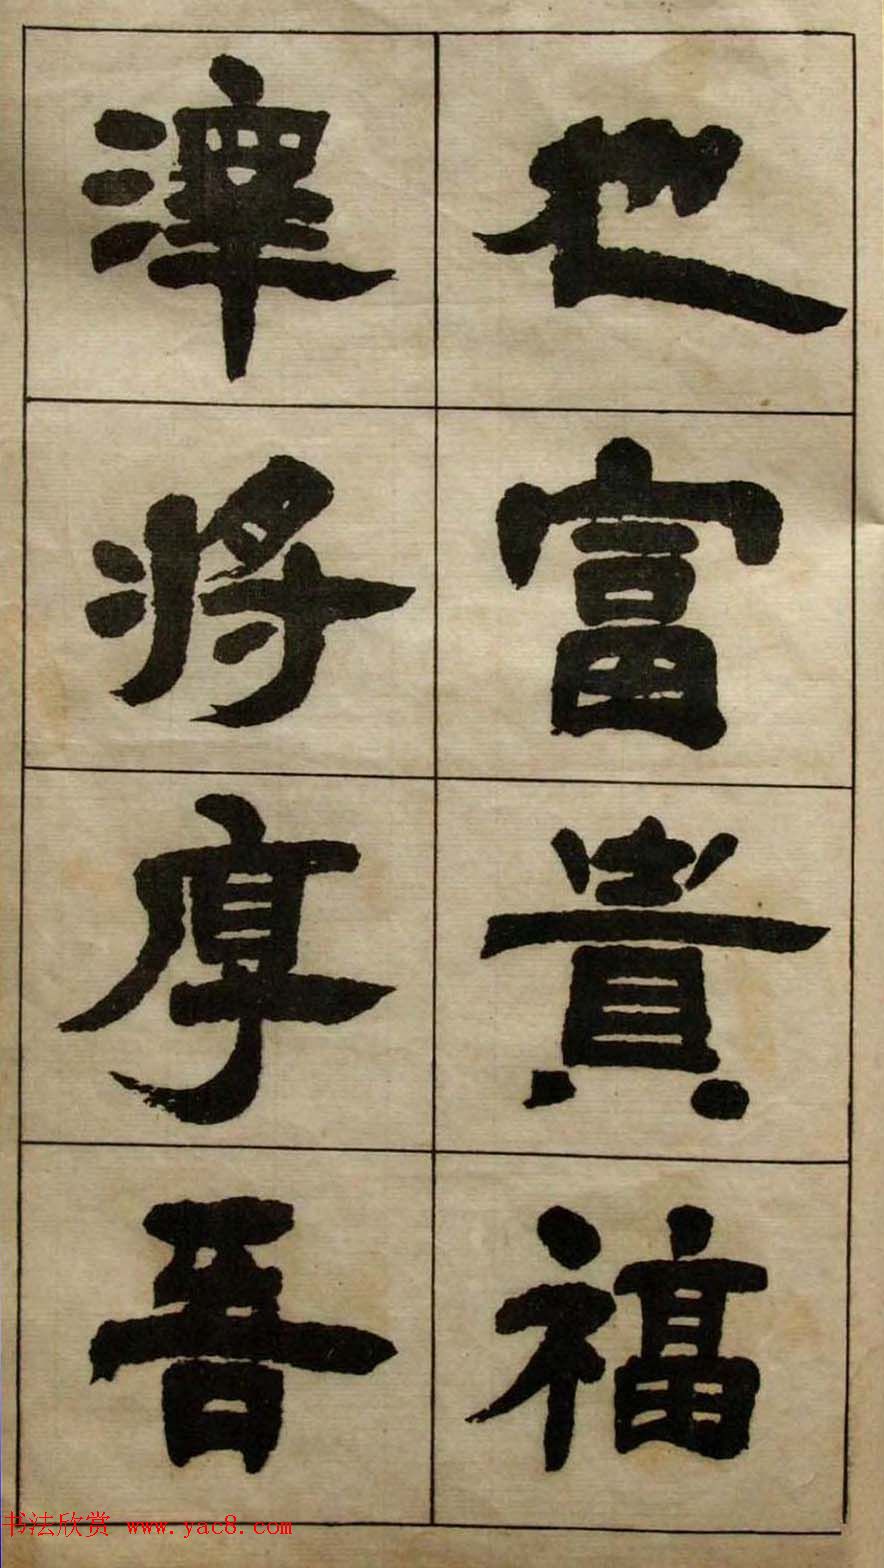 也富貴福
澤將厚吾
书法欣赏 www.yac8.com